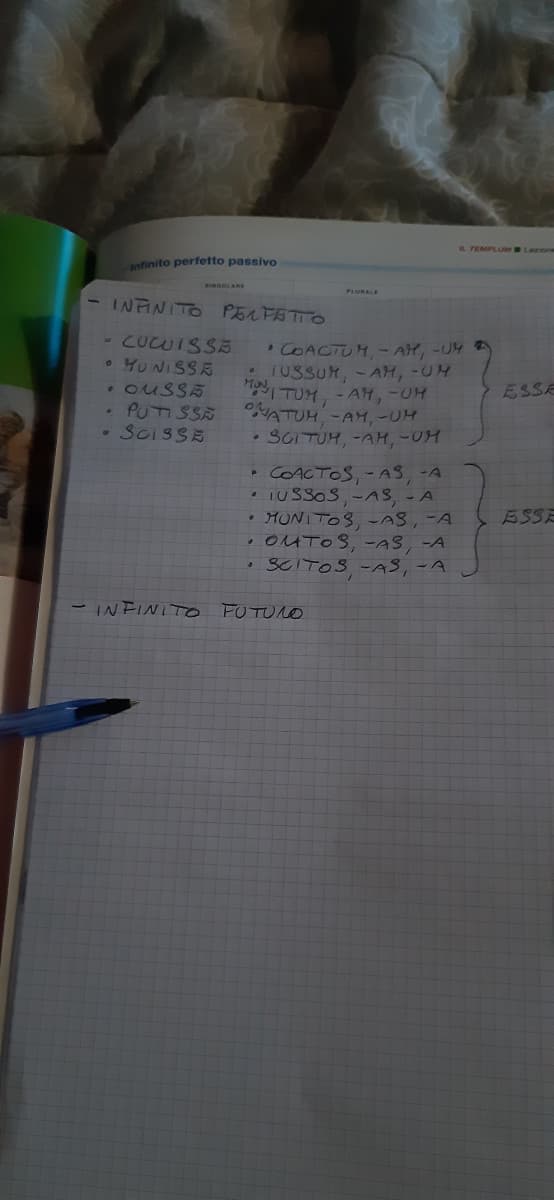 IL TEMPLUM ■ Lezione
Infinito perfetto passivo
SINGOLARE PLURALE
- INFINITO PERFETTO
• CUCUISSE • COACTUM, -AM, -UM
• MUNISSE • IUSSUM, -AM, -UM
• MUNITUM, -AM, -UM ESSE
• PUTISSE ATUM, -AM, -UM
• SCISSE • SCITUM, -AM, -UM
• COACTOS, -AS, -A
• IUSSOS, -AS, -A
• MUNITOS, -AS, -A ESSE
-AS, -A
• SCITOS, -AS, -A
- INFINITO FUTURO